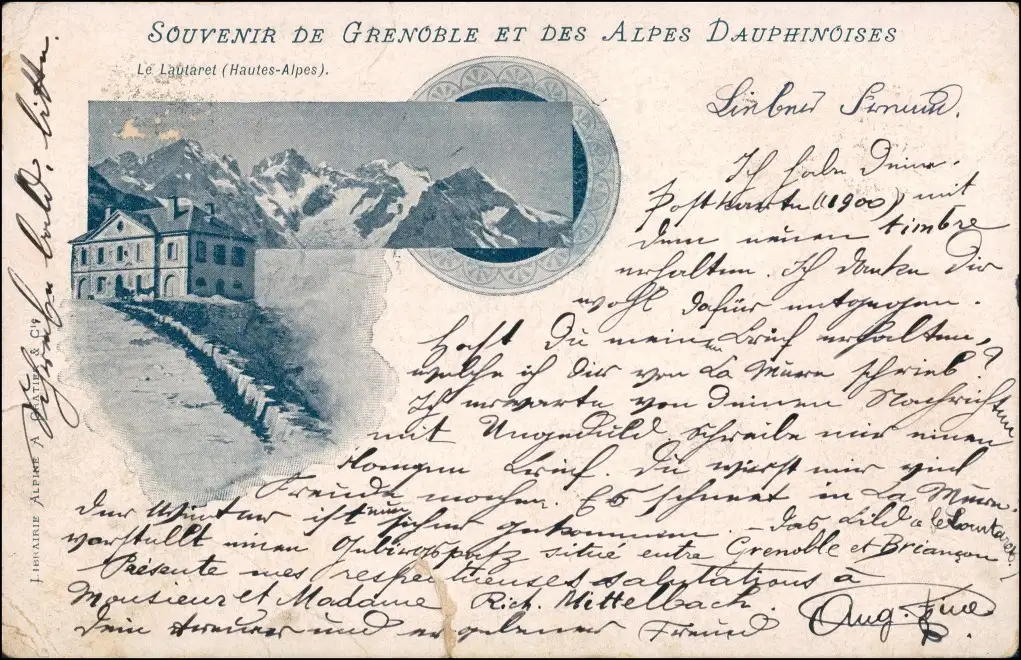 SOUVENIR DE GRENOBLE ET DES ALPES DAUPHINOISES
Le Lautaret (Hautes-Alpes).
Lieber Freund.
Ich habe Deine
Postkarte (1900) mit
dem neuen timbre
erhalten. Ich danke Dir
wohl dafür entgegen.
Hast Du meinen Brief erhalten,
welche ich dir von La Mure schrieb?
Ich erwarte von Deinen Nachrichten
mit Ungeduld schreibe mir einen
langen Brief. Du wirst mir viel
Freude machen. Es schneet in La Mure.
Der Winter ist nun sicher gekommen – Das Bild (le Lautaret)
vorstellt einen Gebirgspatz situé entre Grenoble et Briançon.
Présente mes respectueuses salutations à
Monsieur et Madame Rich. Mittelbach.
Dein treuer und ergebener Freund
Aug.
Schreibe bald, bitte.
LIBRAIRIE ALPINE A. & Cie